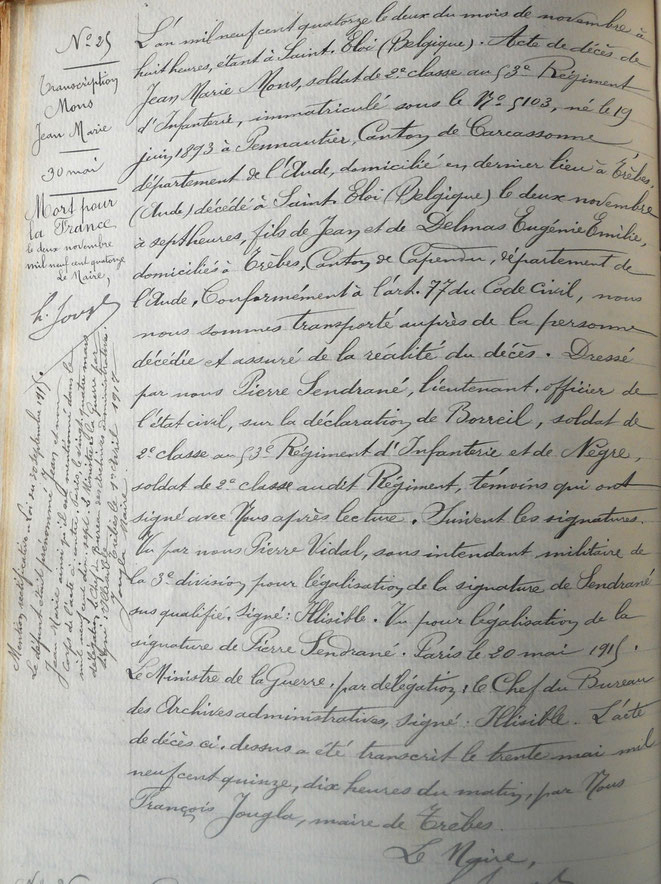 N° 25
Transcription
Mons
Jean Marie
30 mai
Mort pour
la France
le deux novembre
mil neuf cent quatorze
Le Maire,
h. Jougla
Mention rectificative. Loi du 30 Septembre 1915.
Le défunt était prénommé Jean et
Jean Marie ainsi qu'il est mentionné dans le
corps de l'acte ci-contre. Paris, le vingt quatre mars
mil neuf cent dix sept. Le Ministre de la Guerre par
délégation, le Chef du Bureau des archives administratives.
signé: Illisible. Trèbes le 1er avril 1917
Le Maire
Jougla
L'an mil neuf cent quatorze le deux du mois de novembre à
huit heures, étant à Saint. Eloi (Belgique). Acte de décès de
Jean Marie Mons, soldat de 2e classe au 53e Régiment
d'Infanterie, immatriculé sous le N° 5103, né le 19
juin 1893 à Pennautier, Canton de Carcassonne
département de l'Aude, domicilié en dernier lieu à Trèbes,
(Aude) décédé à Saint. Eloi (Belgique) le deux novembre
à sept heures, fils de Jean et de Delmas Eugénie Emilie,
domiciliés à Trèbes, Canton de Capendu, département de
l'Aude, Conformément à l'art. 77 du Code Civil, nous
nous sommes transporté auprès de la personne
décédée et assuré de la réalité du décès. Dressé
par nous Pierre Sendrané, lieutenant, officier de
l'état civil, sur la déclaration de Borreil, soldat de
2e classe au 53e Régiment d'Infanterie et de Nègre,
soldat de 2e classe au dit Régiment, témoins qui ont
signé avec Nous après lecture. Suivent les signatures.
Vu par nous Pierre Vidal, sous intendant militaire de
la 3e division pour légalisation de la signature de Sendrané
sus qualifié. Signé: Illisible. Vu pour légalisation de la
signature de Pierre Sendrané. Paris le 20 mai 1915.
Le Ministre de la Guerre, par délégation, le Chef du Bureau
des Archives administratives, signé: Illisible. L'acte
de décès ci. dessus a été transcrit le trente mai mil
neuf cent quinze, dix heures du matin, par Nous
François Jougla, maire de Trèbes.
Le Maire,